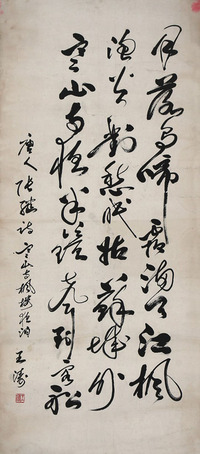 月落烏啼霜滿天江楓
漁火對愁眠姑蘇城外
寒山寺夜半鐘聲到客船
唐人張繼詩寒山寺楓橋夜泊
王